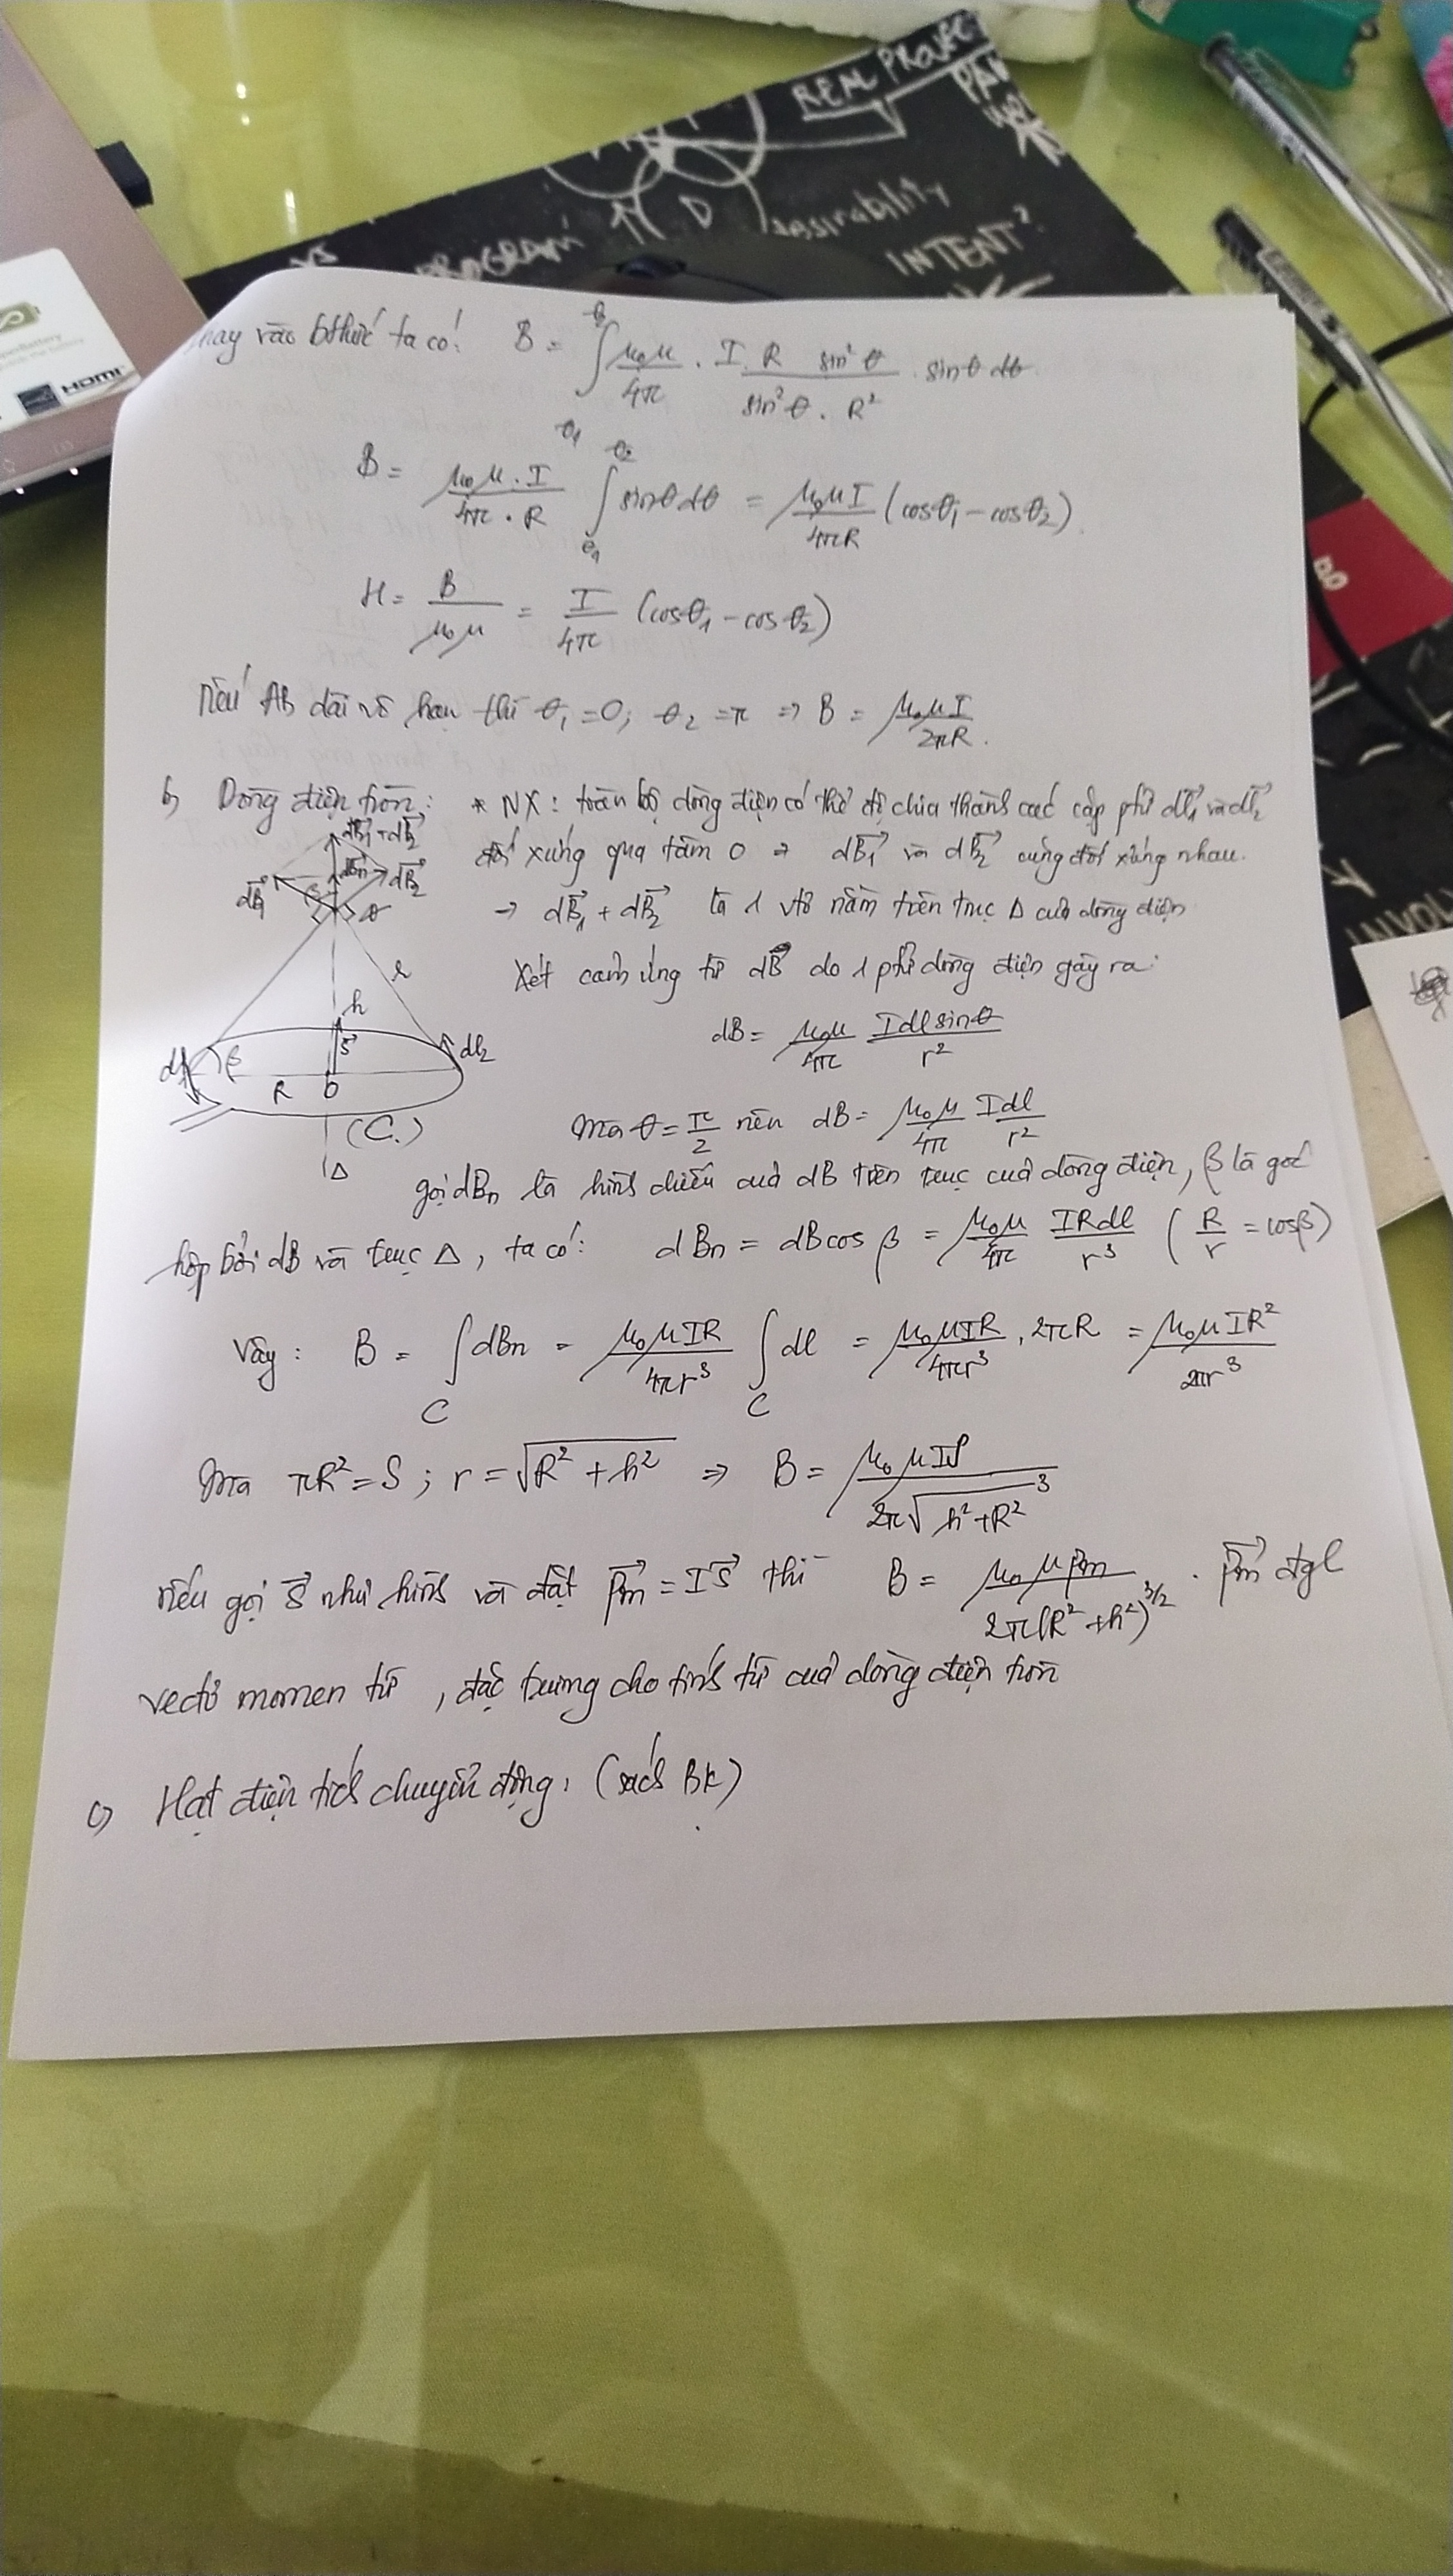 REAL PROJEC
PROGRAM
INTENT?
HDMI
hay vào bthức ta có: B = ∫_{θ1}^{θ2} μ0μ/4π . I.R sin²θ / sin²θ . R² . sinθ dθ
B = μ0μ.I / 4π.R ∫_{θ1}^{θ2} sinθdθ = μ0μI / 4πR (cosθ1 − cosθ2)
H = B / μ0μ = I / 4π (cosθ1 − cosθ2)
Nếu AB dài vô hạn thì θ1 = 0; θ2 = π => B = μ0μI / 2πR.
b) Dòng điện tròn: * NX: toàn bộ dòng điện có thể chia thành các cặp ptử dl1 và dl2
đối xứng qua tâm O → dB1 và dB2 cũng đối xứng nhau.
→ dB1 + dB2 là 1 vtơ nằm trên trục Δ của dòng điện
dB1 + dB2
dB1 dBn dB2
β θ
r
h
S
dl1 β dl2
R O
(C.)
Δ
Xét cảm ứng từ dB do 1 ptử dòng điện gây ra:
dB = μ0μ/4π Idl sinθ / r²
Mà θ = π/2 nên dB = μ0μ/4π Idl / r²
gọi dBn là hình chiếu của dB trên trục của dòng điện, β là góc
hợp bởi dB và trục Δ, ta có: dBn = dBcosβ = μ0μ/4π IRdl / r³ (R/r = cosβ)
Vậy: B = ∫_C dBn = μ0μIR / 4πr³ ∫_C dl = μ0μIR / 4πr³ . 2πR = μ0μIR² / 2πr³
Mà πR² = S; r = √(R² + h²) => B = μ0μIS / 2π√(h² + R²)³
Nếu gọi S như hình và đặt pm = IS thì B = μ0μpm / 2π(R² + h²)^{3/2} . pm đgl
vectơ momen từ, đặc trưng cho tính từ của dòng điện tròn
c) Hạt điện tích chuyển động: (sách BK)